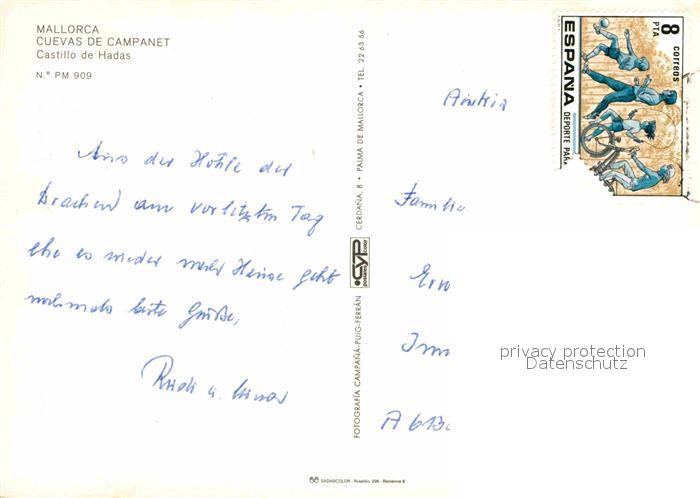 MALLORCA
CUEVAS DE CAMPANET
Castillo de Hadas
N.º PM 909
Aus der Höhle der
Drachen am vorletzten Tag
ehe es wieder nach Hause geht
nochmals beste Grüße,
Rudi u.
FOTOGRAFÍA CAMPAÑÁ-PUIG-FERRÁN
CYP
CERDAÑA, 8 • PALMA DE MALLORCA • TEL. 22 63 56
SADAGCOLOR - Rosellón, 298 - Barcelona 8
8 PTA
correos
ESPAÑA
DEPORTE PARA
Austria
Familie
A 613
privacy protection
Datenschutz